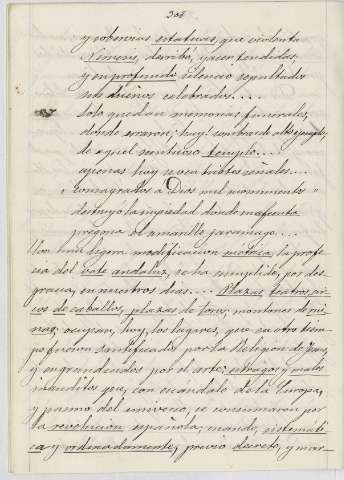 308
y soberbias estatuas, que violenta
Némesis, derribó, yacen tendidas,
y en profundo silencio sepultados
sus dueños celebrados....
Solo quedan memorias funerales,
donde erraron, hay! sombras de alto ejemplo,
de aquel suntuoso templo....
apenas hoy se ven tristes señales....
consagrados a Dios mil monumentos
destruyó la impiedad donde
pregona el amarillo jaramago....
Con una ligera modificacion métrica, la profe-
cia del vate andaluz, se ha cumplido, por des-
gracia, en nuestros dias.... Plazas, teatros, cir-
cos de caballos, plazas de toros, montones de rui-
nas, ocupan, hoy, los lugares, que en otro tiem-
po fueron santificados por la Religion de Jesus,
y engrandecidos por el arte; estragos y males
inauditos que, con escándalo de la Europa,
y pasmo del universo, se consumaron por
la revolucion española, cuando, sistemáti-
ca y ordenadamente, previo decreto, y mar-